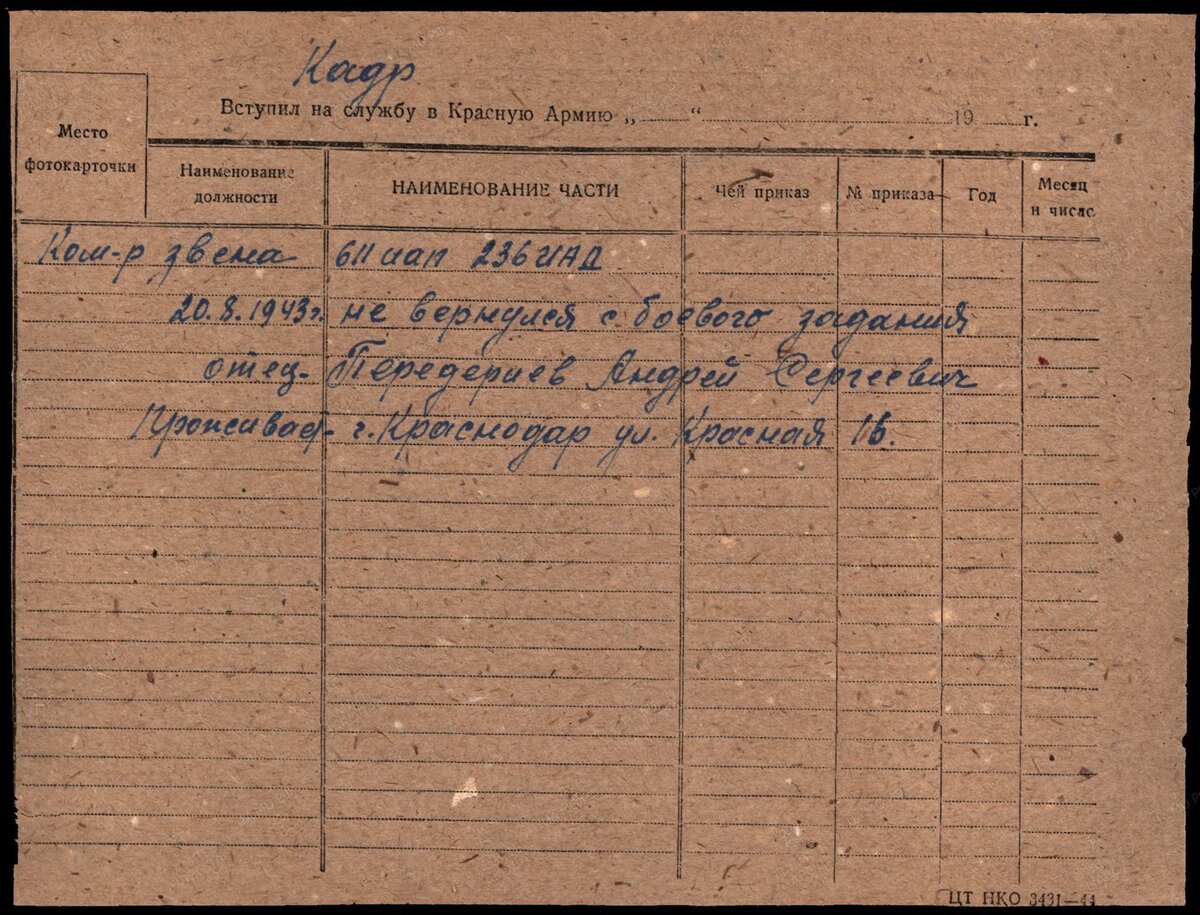 Кадр
Вступил на службу в Красную Армию „ “ 19 г.
Место фотокарточки
Наименование должности
НАИМЕНОВАНИЕ ЧАСТИ
Чей приказ
№ приказа
Год
Месяц и число
Ком-р звена 611 иап 236 ИАД
20.8.1943г. не вернулся с боевого задания
отец- Передериев Андрей Сергеевич
Проживает- г. Краснодар ул. Красная 16.
ЦТ НКО 3431—44